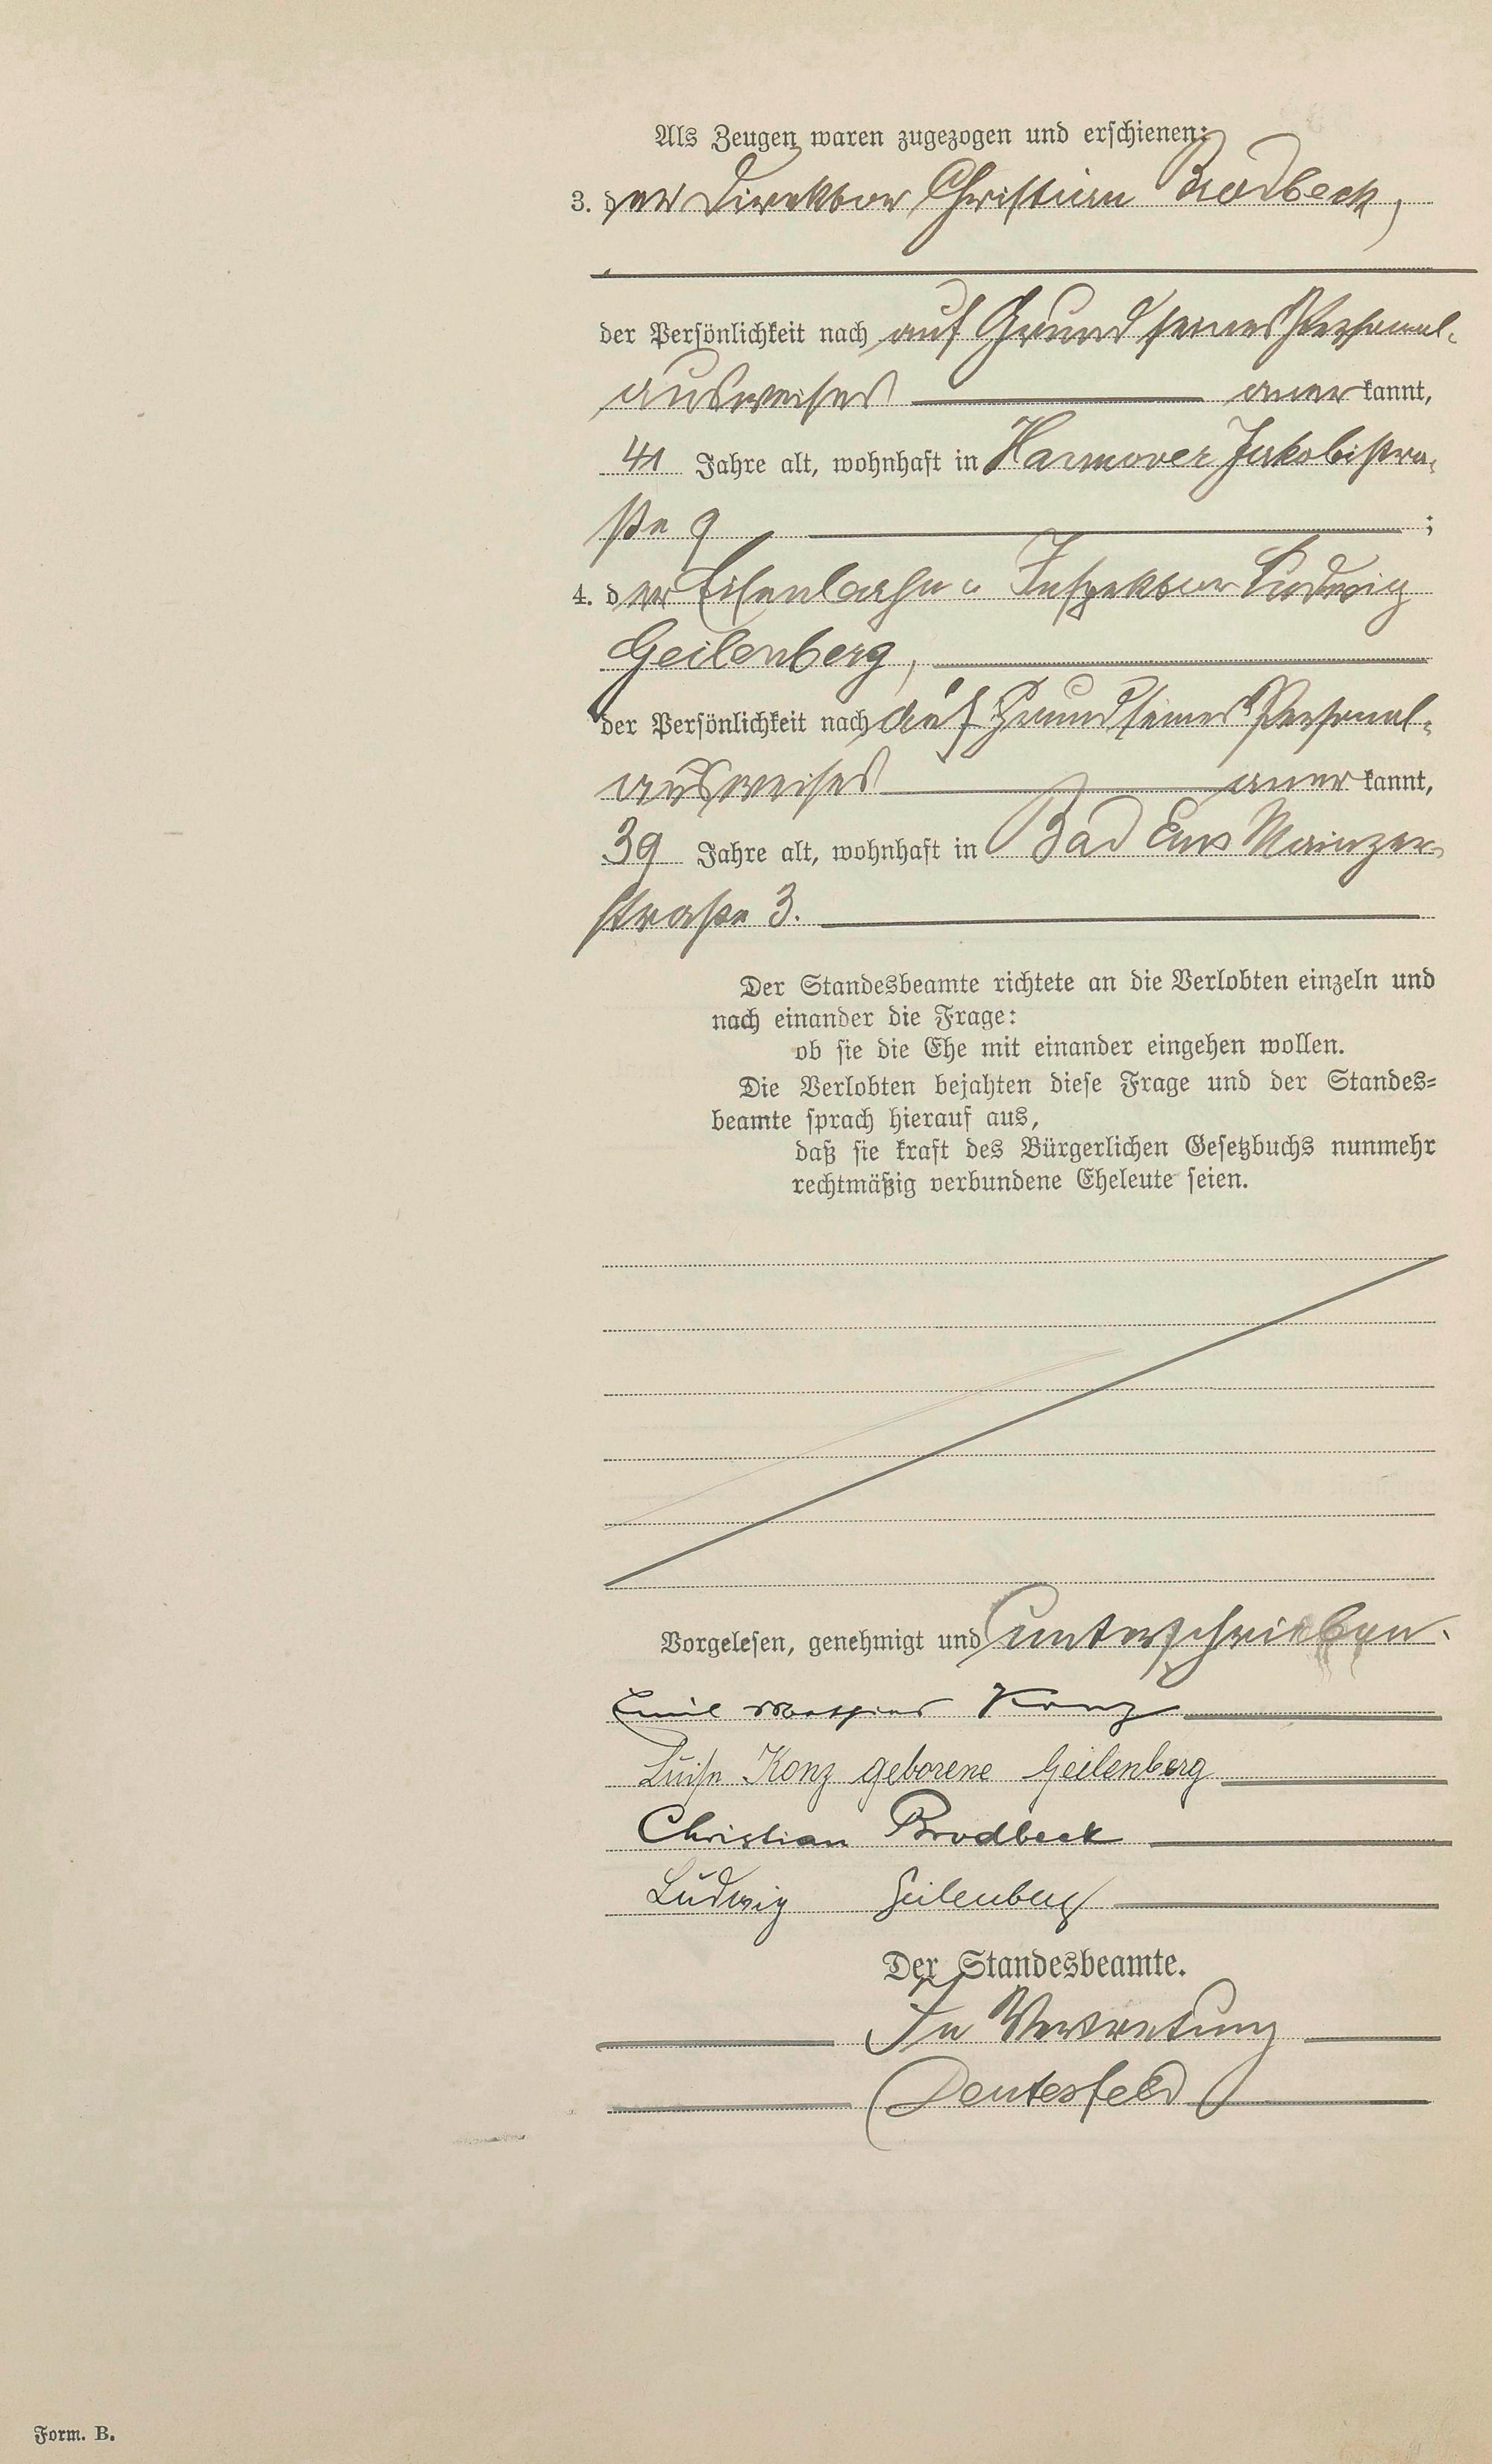 Als Zeugen waren zugezogen und erschienen:
3. der Direktor Christian Brodbeck,
der Persönlichkeit nach auf Grund seines Personal-
ausweises anerkannt,
41 Jahre alt, wohnhaft in Hannover Jakobistra-
ße 9 ;
4. der Eisenbahn-Inspektor Ludwig
Geilenberg,
der Persönlichkeit nach auf Grund seines Personal-
ausweises anerkannt,
39 Jahre alt, wohnhaft in Bad Ems Mainzer-
straße 3.
Der Standesbeamte richtete an die Verlobten einzeln und
nach einander die Frage:
ob sie die Ehe mit einander eingehen wollen.
Die Verlobten bejahten diese Frage und der Standes-
beamte sprach hierauf aus,
daß sie kraft des Bürgerlichen Gesetzbuchs nunmehr
rechtmäßig verbundene Eheleute seien.
Vorgelesen, genehmigt und unterschrieben.
Emil Mathias Konz
Luise Konz geborene Geilenberg
Christian Brodbeck
Ludwig Geilenberg
Der Standesbeamte.
In Vertretung
Deutesfeld
Form. B.